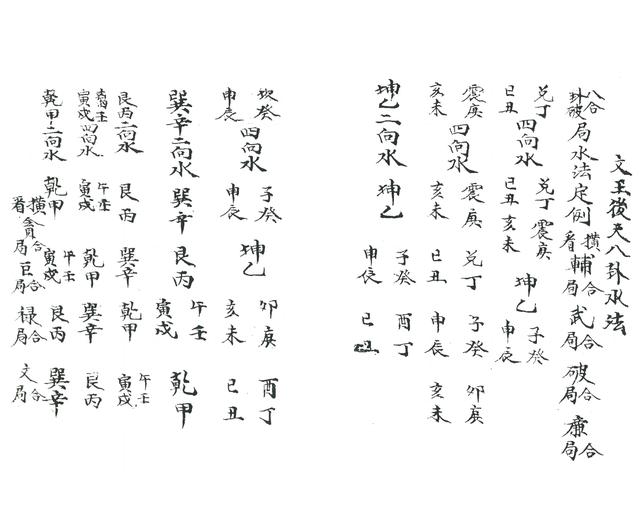 文王後天八卦水法
八卦合破局水法定例 橫看輔合局 武合局 破合局 廉合局
兌丁巳丑四向水 兌丁巳丑 震庚亥未 坤乙 子癸申辰
震庚亥未四向水 震庚亥未 兌丁巳丑 子癸申辰 卯庚亥未
坤乙二向水 坤乙 子癸申辰 酉丁巳丑
坎癸申辰四向水 子癸申辰 坤乙 卯庚亥未 酉丁巳丑
巽辛二向水 巽辛 艮丙 午壬寅戌 乾甲
艮丙二向水 艮丙 巽辛 乾甲 午壬寅戌
壬寅戌四向水 午壬寅戌 乾甲 巽辛 艮丙
乾甲二向水 乾甲 午壬寅戌 艮丙 巽辛
橫看貪合局 巨合局 祿合局 文合局